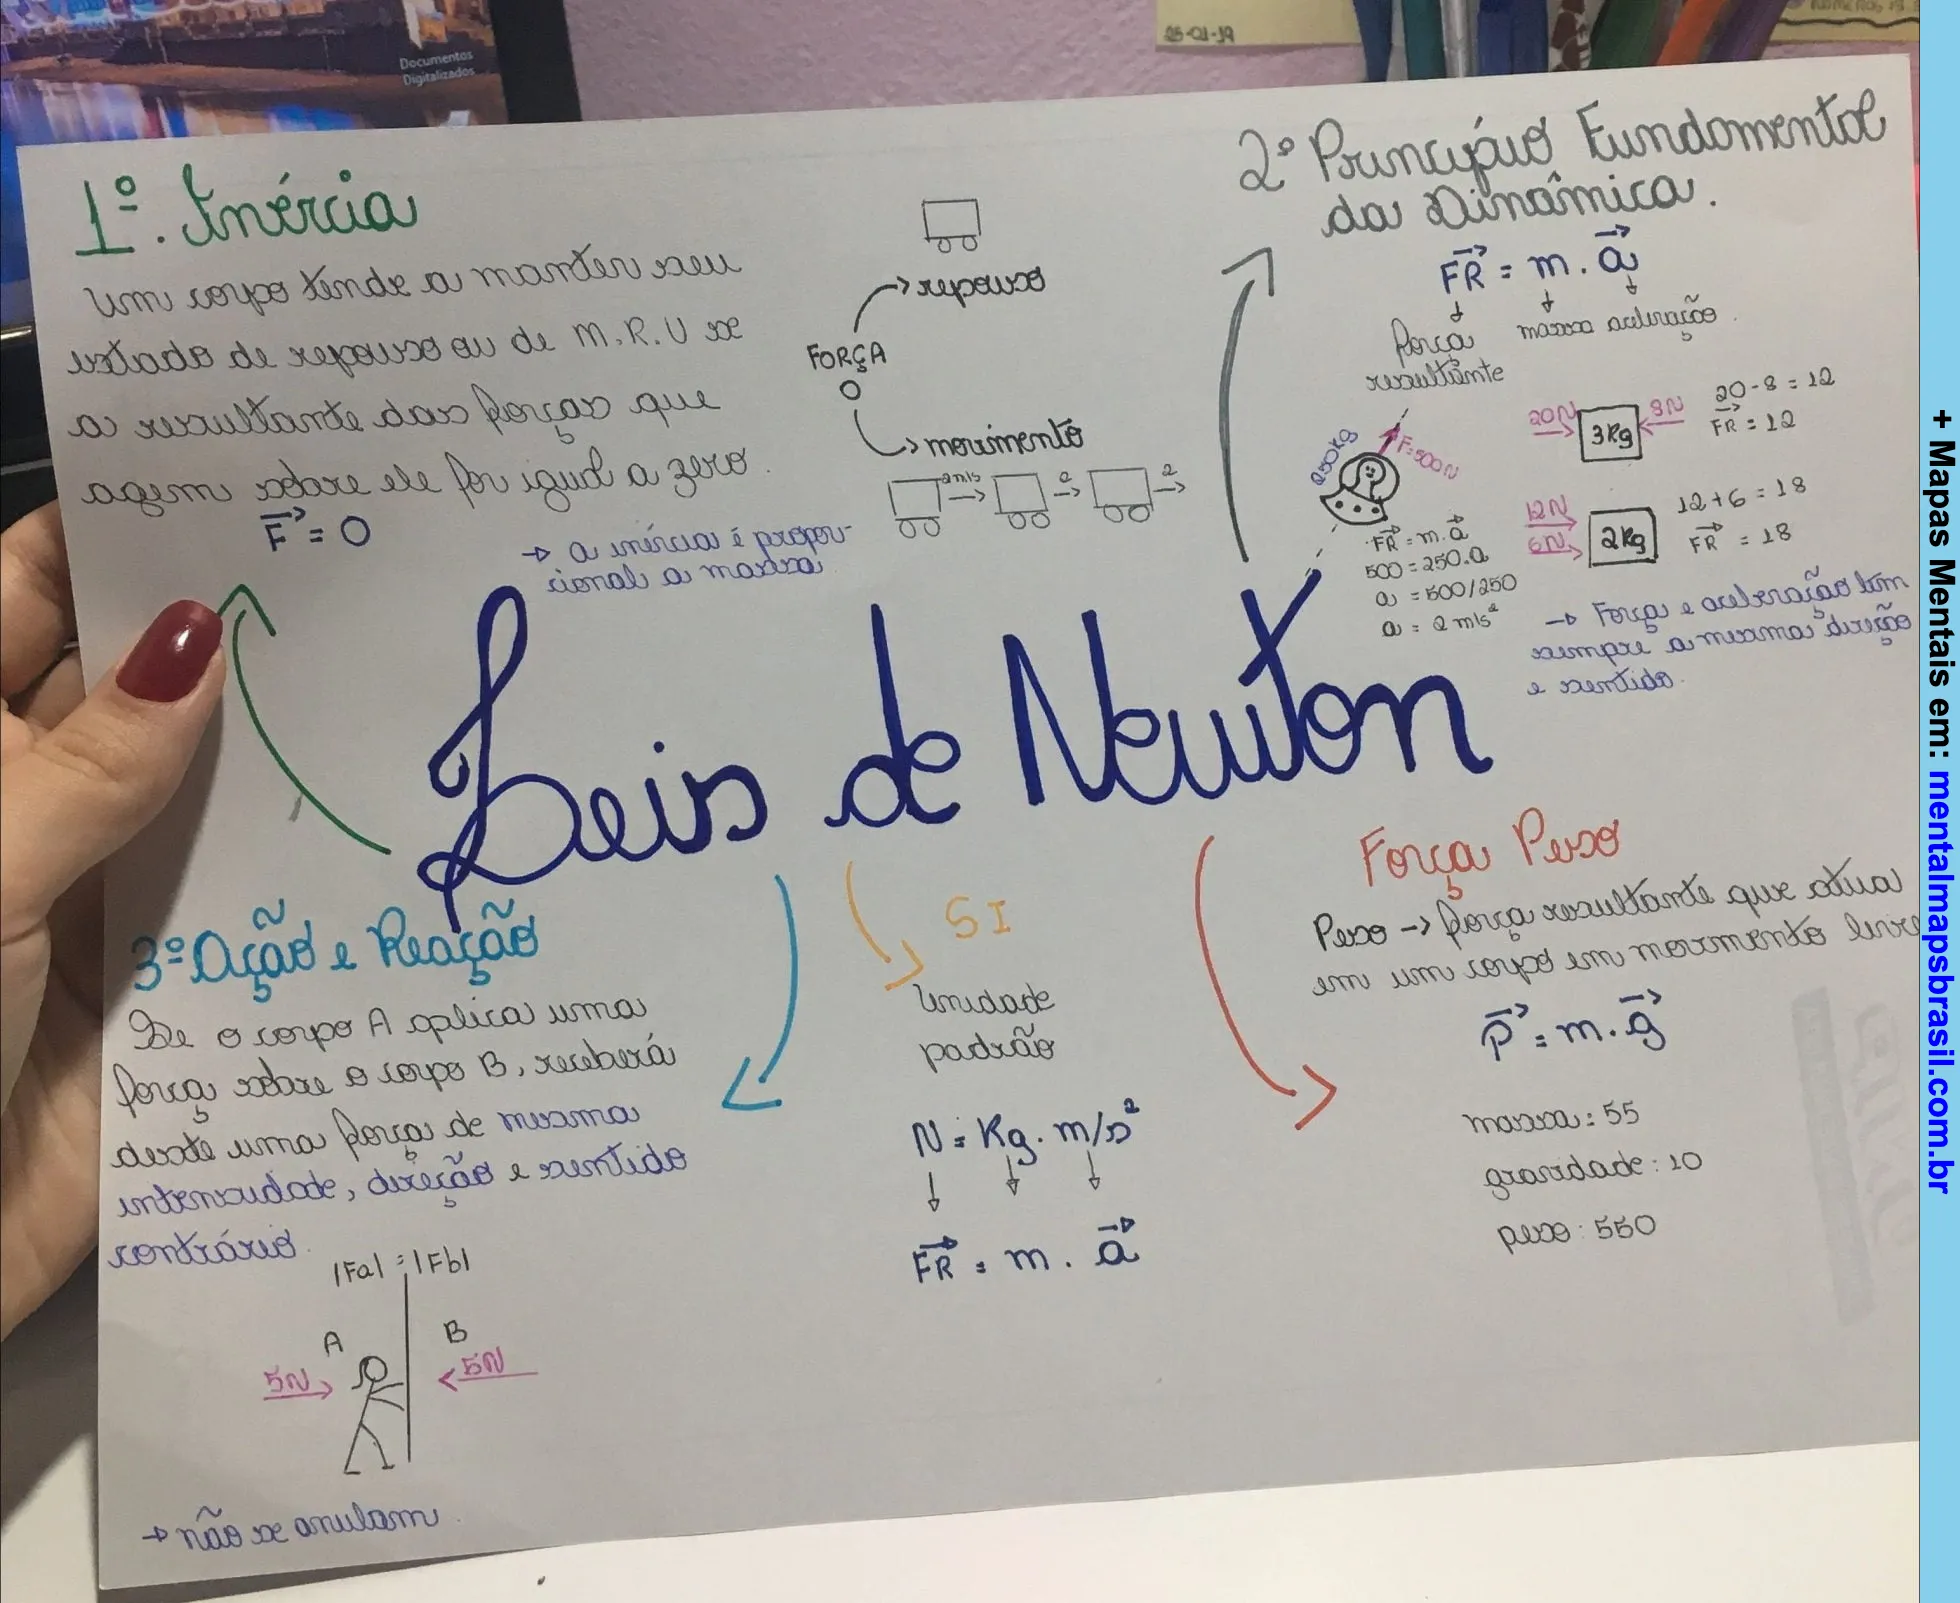 Documentos
Digitalizados
25-01-19
1º. Inércia
Um corpo tende a manter seu
estado de repouso ou de M.R.U se
a resultante das forças que
agem sobre ele for igual a zero.
F = 0
→ a inércia é propor-
cional a massa
repouso
FORÇA
0
movimento
2m/s
2
2
2º Princípio Fundamental
da Dinâmica.
FR = m . a
força
resultante
massa aceleração
250kg
F=500N
FR = m.a
500 = 250.a
a = 500/250
a = 2 m/s²
20N
3Kg
8N
20-8 = 12
FR = 12
12N
6N
2Kg
12+6 = 18
FR = 18
→ Força e aceleração tem
sempre a mesma direção
e sentido.
Leis de Newton
3º Ação e Reação
Se o corpo A aplica uma
força sobre o corpo B, receberá
deste uma força de mesma
intensidade, direção e sentido
contrário.
|Fa| = |Fb|
A
B
5N
5N
→ não se anulam.
SI
Unidade
padrão
N = Kg. m/s²
FR = m . a
Força Peso
Peso → força resultante que atua
em um corpo em movimento livre
P = m.g
massa: 55
gravidade: 10
peso: 550
+ Mapas Mentais em: mentalmapsbrasil.com.br